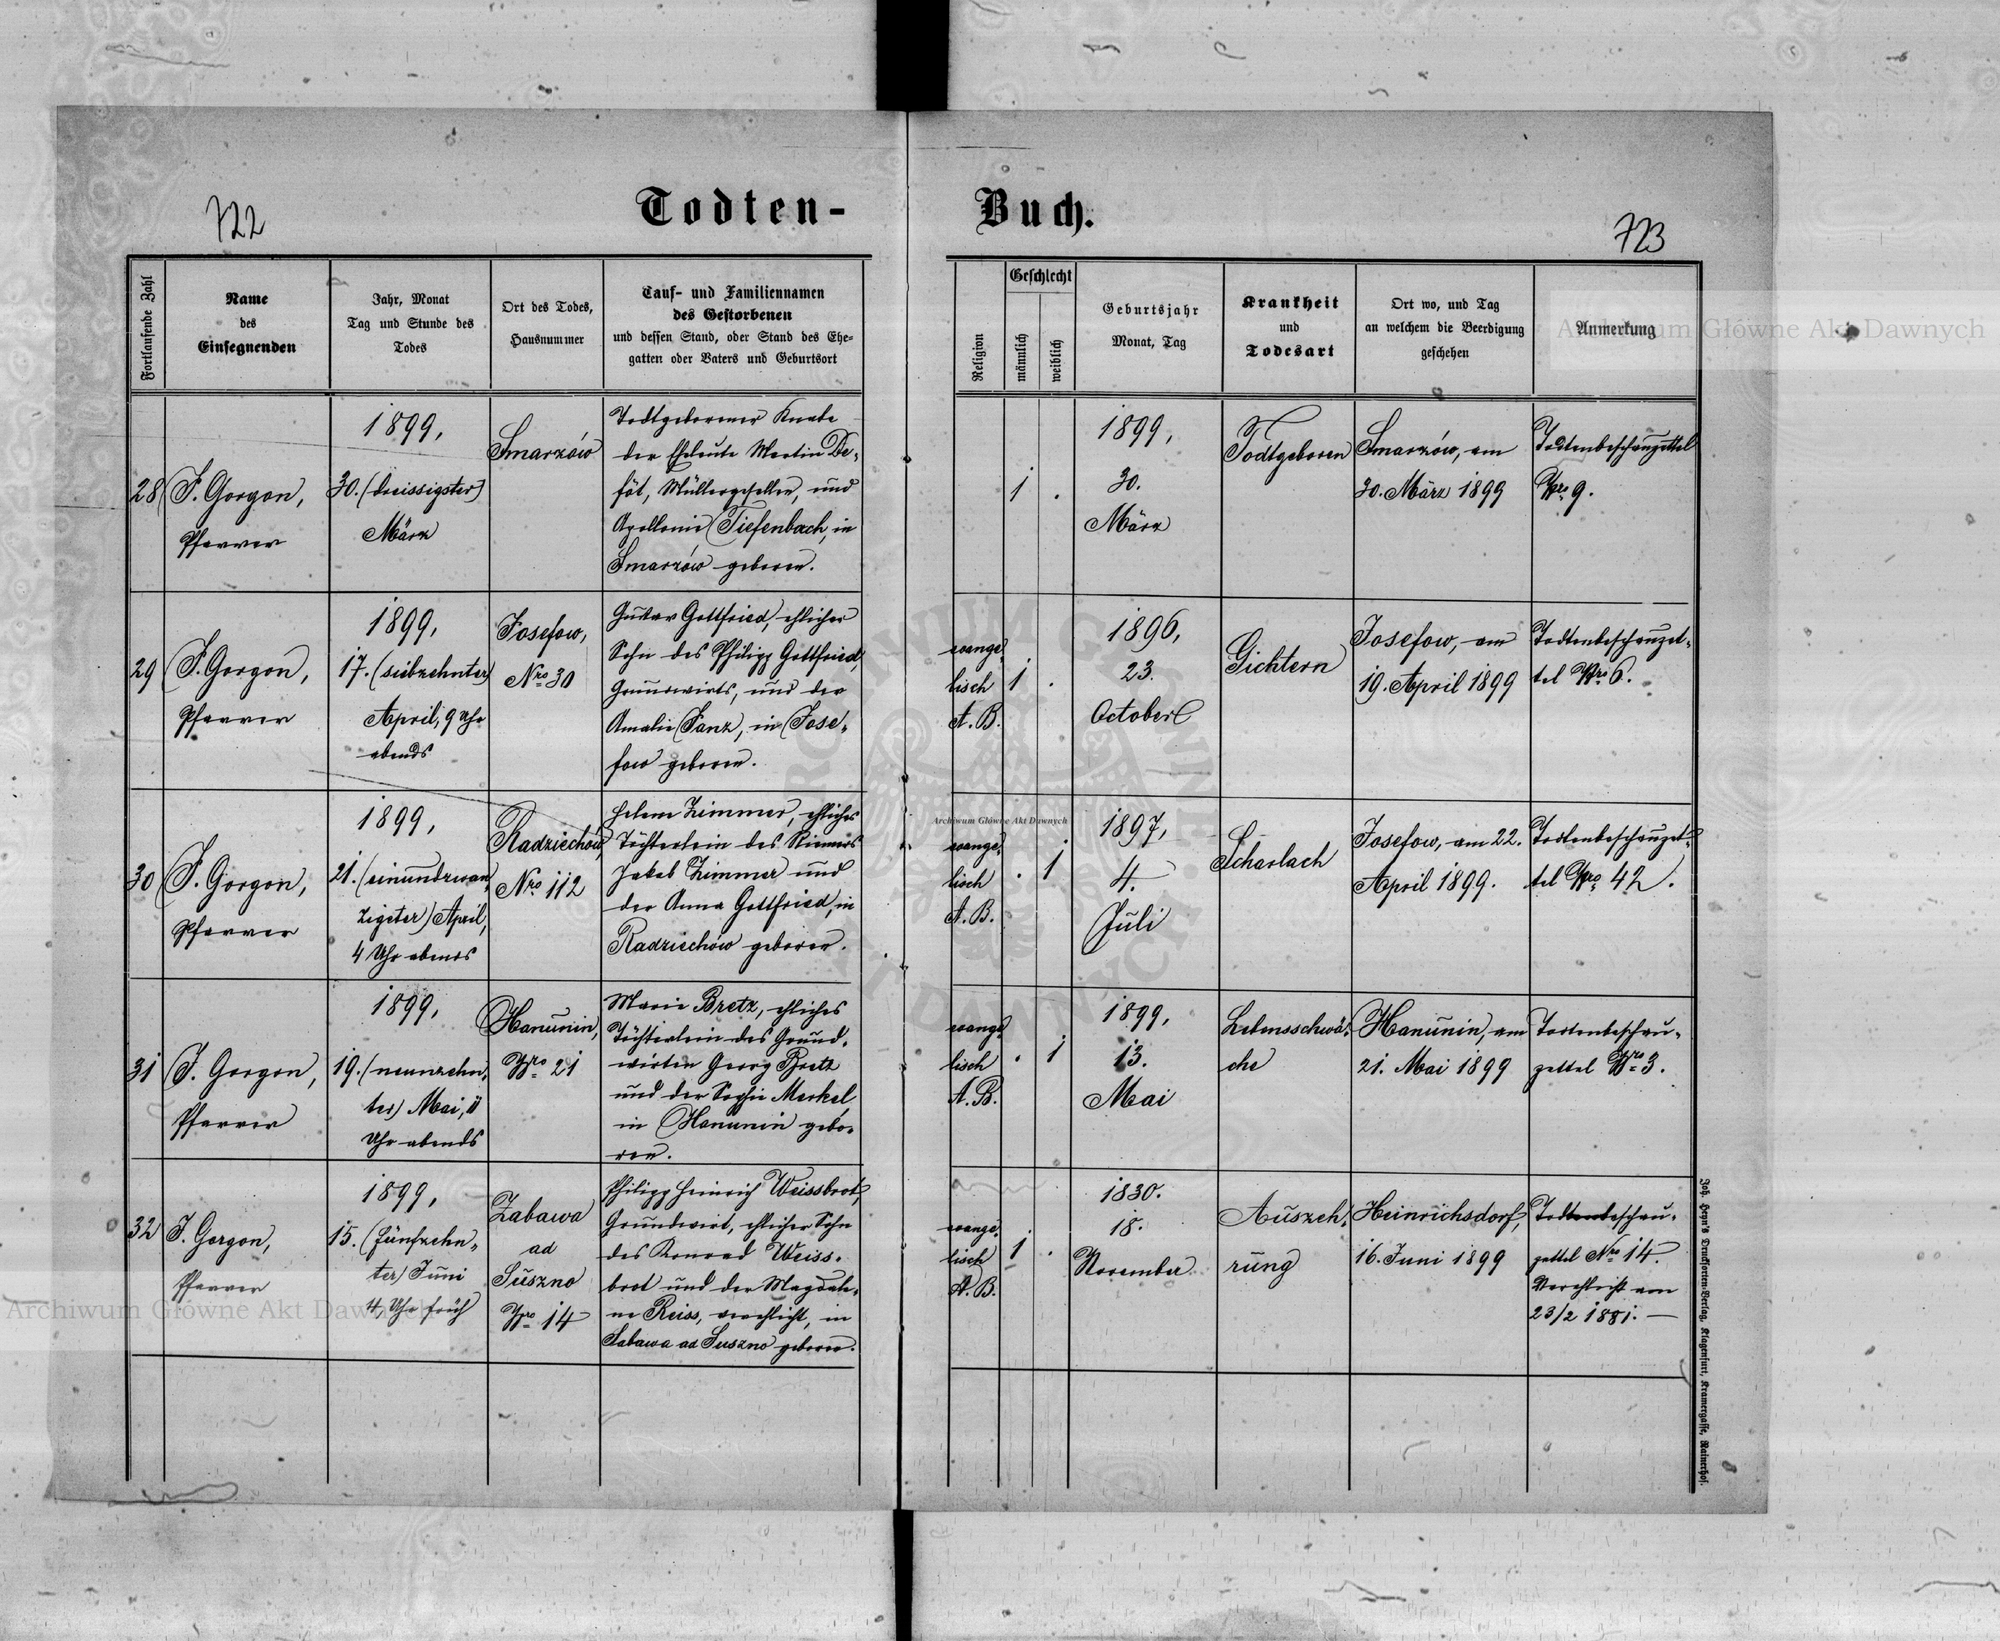 722
Todten-
Buch.
723
Fortlaufende Zahl
Name
des
Einsegnenden
Jahr, Monat
Tag und Stunde des
Todes
Ort des Todes,
Hausnummer
Tauf- und Familiennamen
des Gestorbenen
und dessen Stand, oder Stand des Ehe-
gatten oder Vaters und Geburtsort
Religion
Geschlecht
männlich
weiblich
Geburtsjahr
Monat, Tag
Krankheit
und
Todesart
Ort wo, und Tag
an welchem die Beerdigung
geschehen
Anmerkung
28
J. Gorgon,
Pfarrer
1899,
30. (dreissigster)
März
Smarzów
Todtgeborener Knabe
der Eheleute Martin De-
föt, Müllergesellen, und
Apollonie Tiefenbach, in
Smarzów geboren.
1 .
1899,
30.
März
Todtgeboren
Smarzów, am
30. März 1899
Todtenbeschauzettel
Nro 9.
29
J. Gorgon,
Pfarrer
1899,
17. (siebzehnter)
April, 9 Uhr
abends
Josefow,
Nro 30
Gustav Gottfried, ehlicher
Sohn des Philipp Gottfried,
Grundwirts, und der
Amalie Janz, in Jose-
fow geboren.
evange-
lisch
A. B.
1 .
1896,
23.
October
Gichtern
Josefow, am
19. April 1899
Todtenbeschauzet-
tel Nro 6.
30
J. Gorgon,
Pfarrer
1899,
21. (einundzwan-
zigster) April,
4 Uhr abends
Radziechów,
Nro 112
Helene Zimmer, ehliches
Töchterlein des Riemers
Jakob Zimmer und
der Anna Gottfried, in
Radziechów geboren.
evange-
lisch
A. B.
. 1
1897,
4.
Juli
Scharlach
Josefow, am 22.
April 1899.
Todtenbeschauzet-
tel Nro 42.
31
J. Gorgon,
Pfarrer
1899,
19. (neunzehn-
ter) Mai, 11
Uhr abends
Hanunin,
Nro 21
Marie Bretz, ehliches
Töchterlein des Grund-
wirten Georg Bretz
und der Sophie Merkel,
in Hanunin gebo-
ren.
evange-
lisch
A. B.
. 1
1899,
13.
Mai
Lebensschwä-
che
Hanunin, am
21. Mai 1899
Todtenbeschau-
zettel Nro 3.
32
J. Gorgon,
Pfarrer
1899,
15. (fünfzehn-
ter) Juni
4 Uhr früh
Zabawa
ad
Suszno
Nro 14
Philipp Heinrich Weissbrot,
Grundwirt, ehlicher Sohn
des Konrad Weiss-
brot und der Magdale-
ne Reiss, verehlicht, in
Sabawa ad Suszno geboren.
evange-
lisch
A. B.
1 .
1830.
18.
November
Auszeh-
rung
Heinrichsdorf,
16. Juni 1899
Todtenbeschau-
zettel Nro 14.
Verehlicht am
23/2 1881. —
Joh. Heyn's Drucksorten-Verlag, Klagenfurt, Kramergasse, Rainerhof.
Archiwum Główne Akt Dawnych
Archiwum Główne Akt Dawnych
Archiwum Główne Akt Dawnych